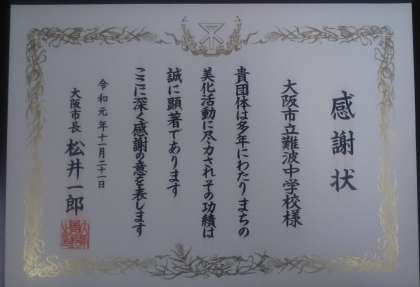 感謝状
大阪市立難波中学校様
貴団体は多年にわたりまちの
美化活動に尽力されその功績は
誠に顕著であります
ここに深く感謝の意を表します
令和元年十一月二十一日
大阪市長 松井一郎